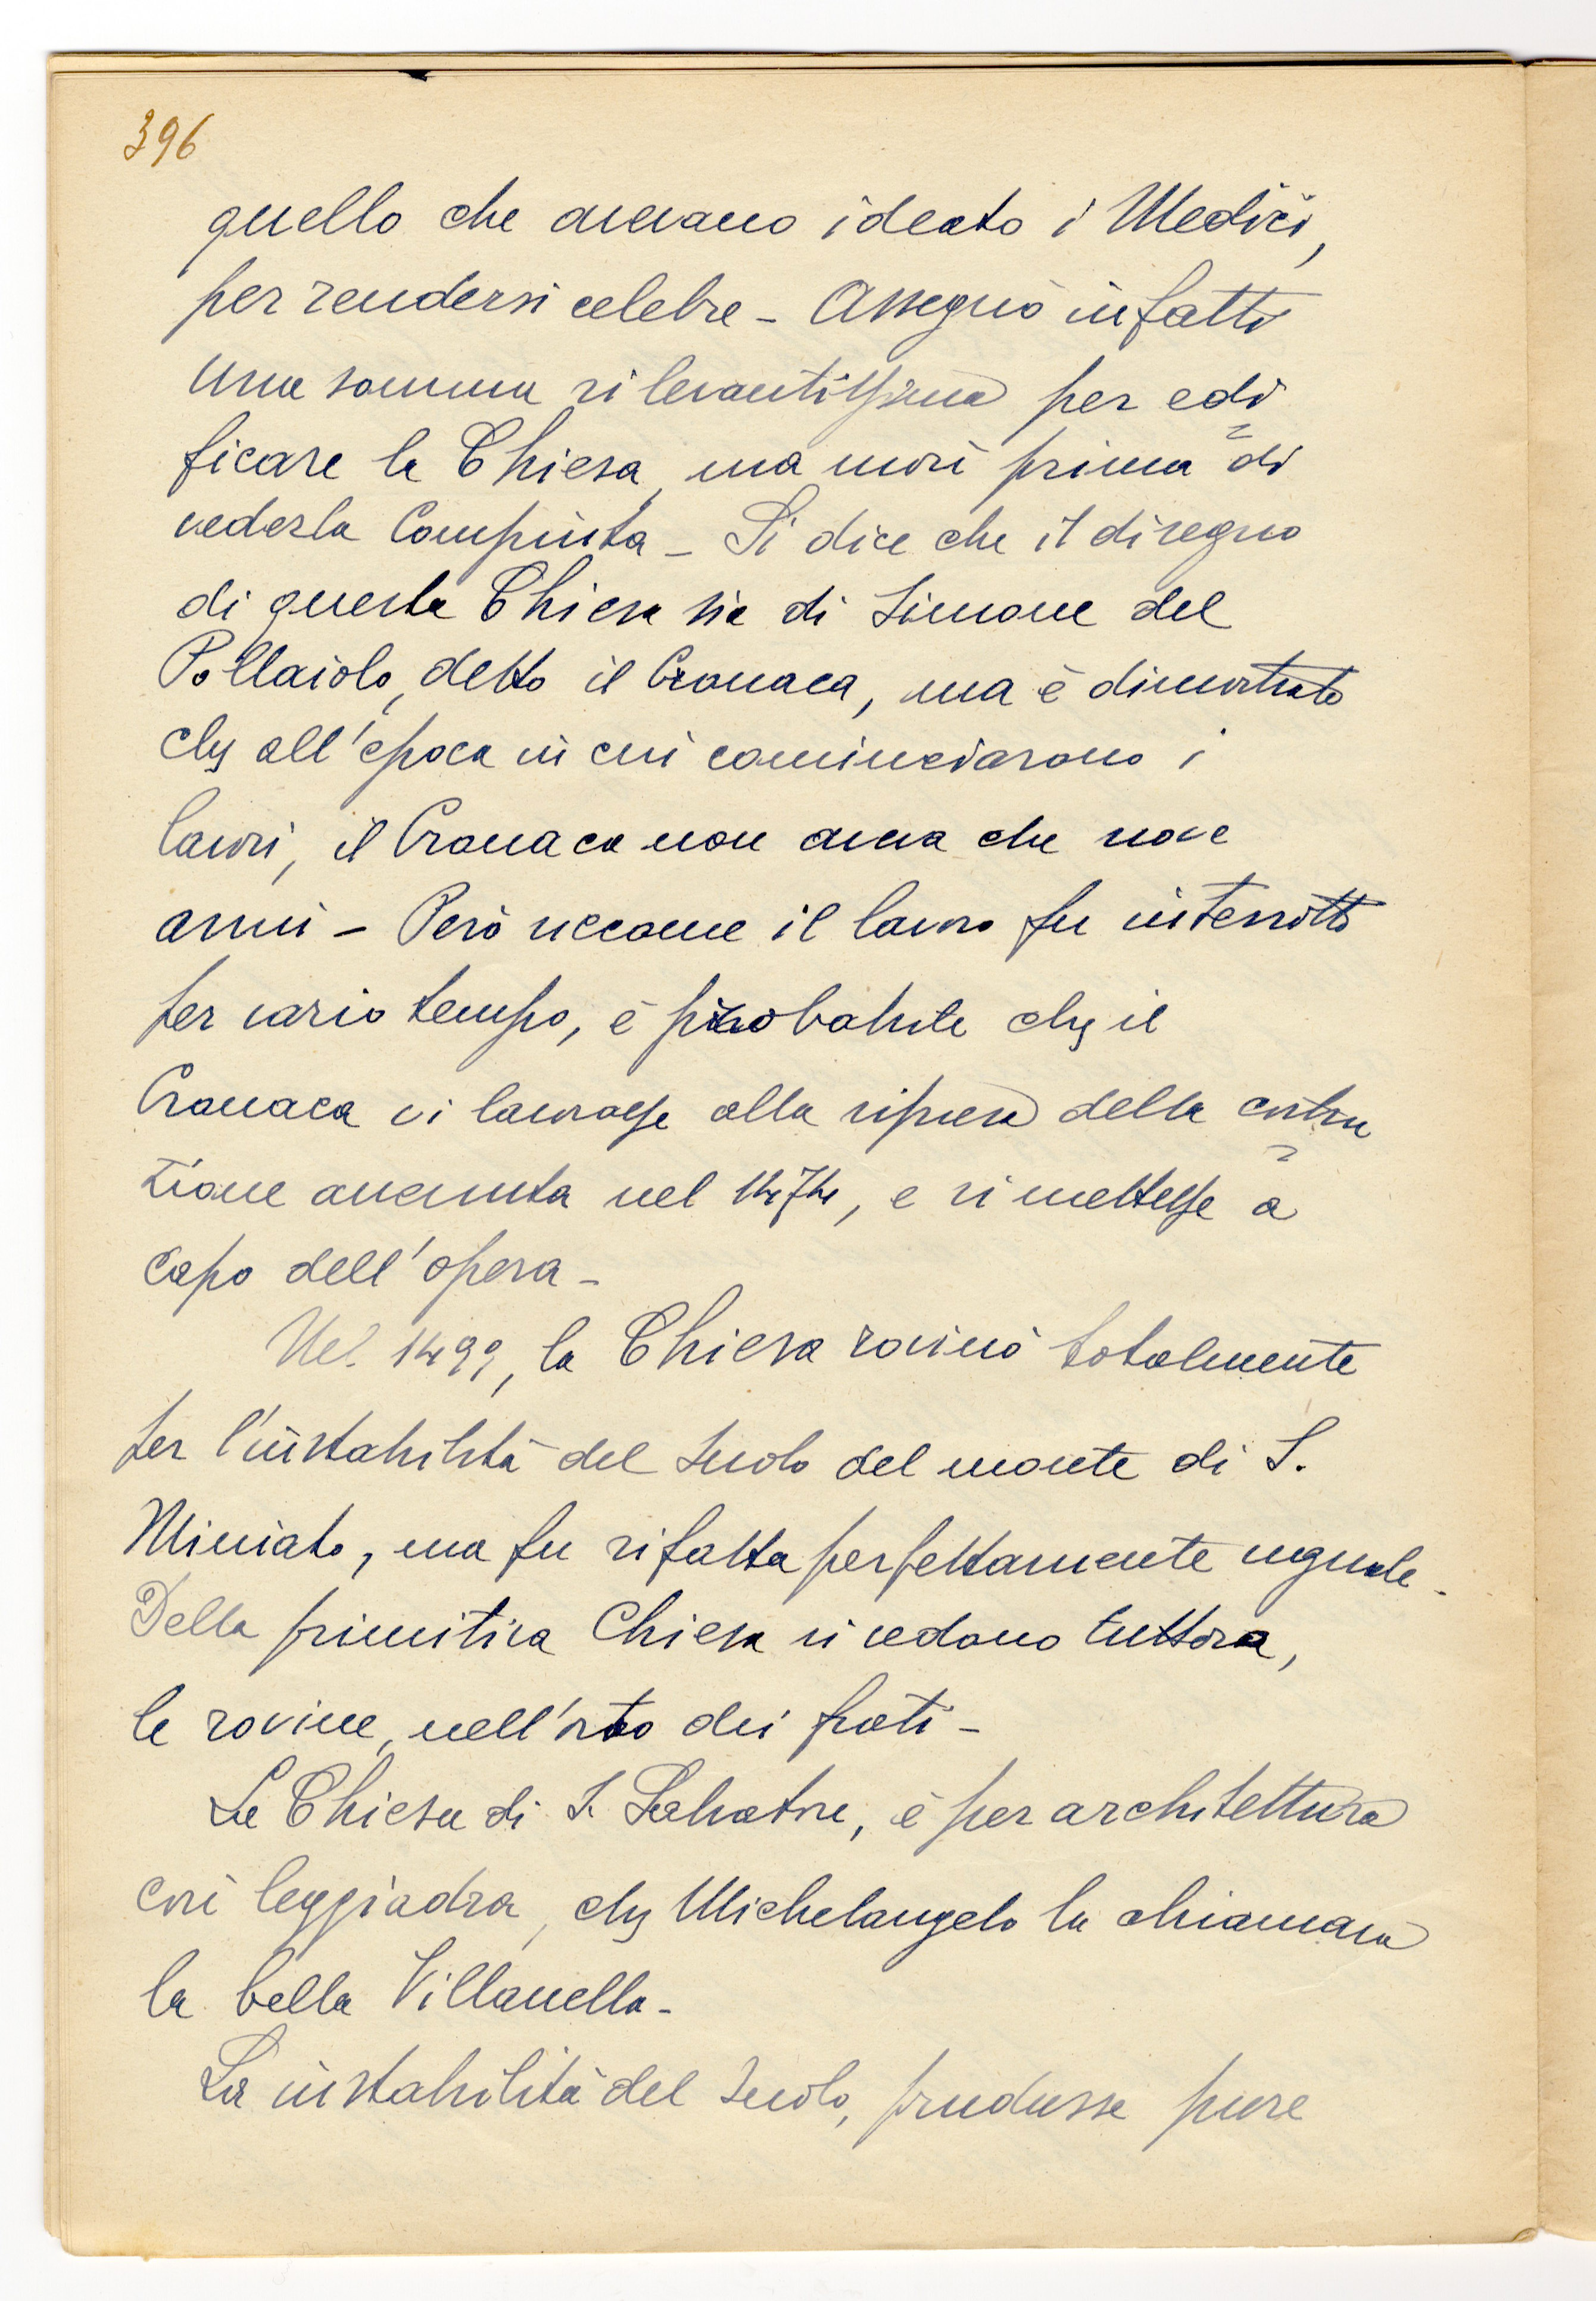 396
quello che avevano ideato i Medici,
per rendersi celebre - Assegnò infatti
una somma rilevantissima per edi
ficare la Chiesa, ma morì prima di
vederla compiuta - Si dice che il disegno
di questa Chiesa sia di Simone del
Pollaiolo, detto il Cronaca, ma è dimostrato
che all'epoca in cui cominciarono i
lavori, il Cronaca non aveva che nove
anni - Però siccome il lavoro fu interrotto
per vario tempo, è probabile che il
Cronaca vi lavorasse alla ripresa della costru
zione avvenuta nel 1474, e si mettesse a
capo dell'opera -
Nel 1499, la Chiesa rovinò totalmente
per l'instabilità del suolo del monte di S.
Miniato, ma fu rifatta perfettamente uguale -
Della primitiva Chiesa si vedono tuttora,
le rovine, nell'orto dei frati -
La Chiesa di S. Salvatore, è per architettura
così leggiadra, che Michelangelo la chiamava
la bella Villanella -
La instabilità del suolo, produsse pure